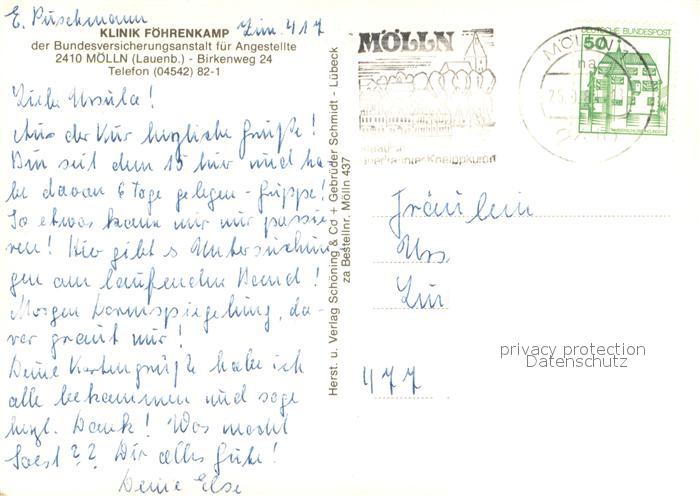 E. Püschmann Zim. 417
KLINIK FÖHRENKAMP
der Bundesversicherungsanstalt für Angestellte
2410 MÖLLN (Lauenb.) - Birkenweg 24
Telefon (04542) 82-1
Liebe Ursula!
Aus der Kur herzliche Grüße!
Bin seit dem 15 hier und ha-
be davon 6 Tage gelegen - Grippe!
So etwas kann mir nur passie-
ren! Hier gibt s Untersuchun-
gen am laufenden Band!
Morgen Darmspiegelung, da-
vor graut mir!
Deine Kartengrüße habe ich
alle bekommen und sage
herzl. Dank! Was macht
Soest?? Dir alles Gute!
Deine Else
Herst. u. Verlag Schöning & Co + Gebrüder Schmidt - Lübeck
zu Bestellnr. Mölln 437
MÖLLN
Kneippkurort
MÖLLN
DEUTSCHE BUNDESPOST
50
Fräulein
Urs
Zur
477
privacy protection
Datenschutz